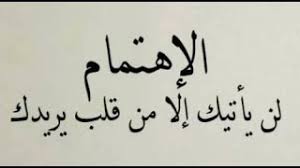 الإهتمام
لن يأتيك إلا من قلب يريدك